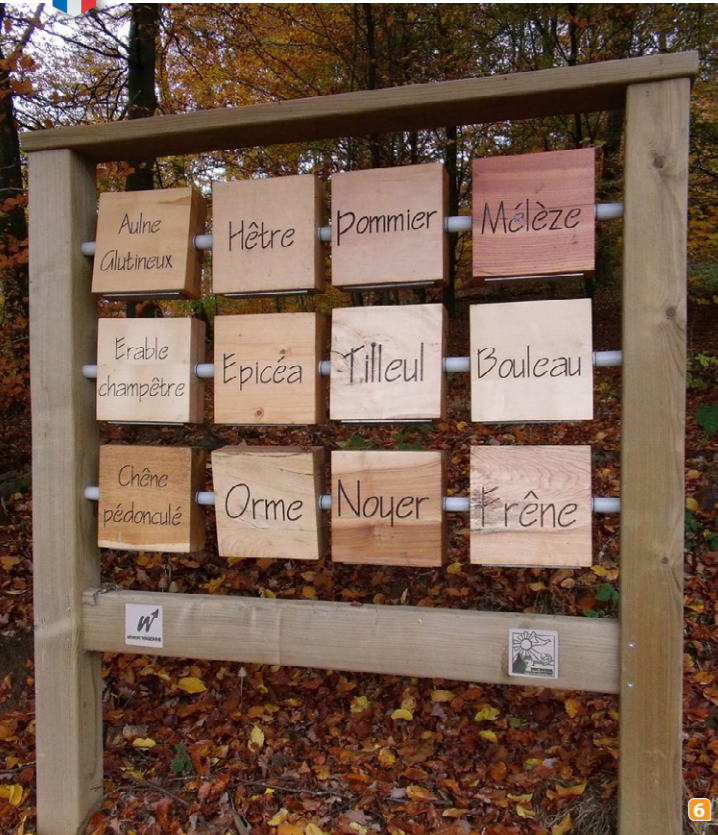 Aulne
Glutineux
Hêtre
Pommier
Mélèze
Erable
champêtre
Epicéa
Tilleul
Bouleau
Chêne
pédonculé
Orme
Noyer
Frêne
W
6